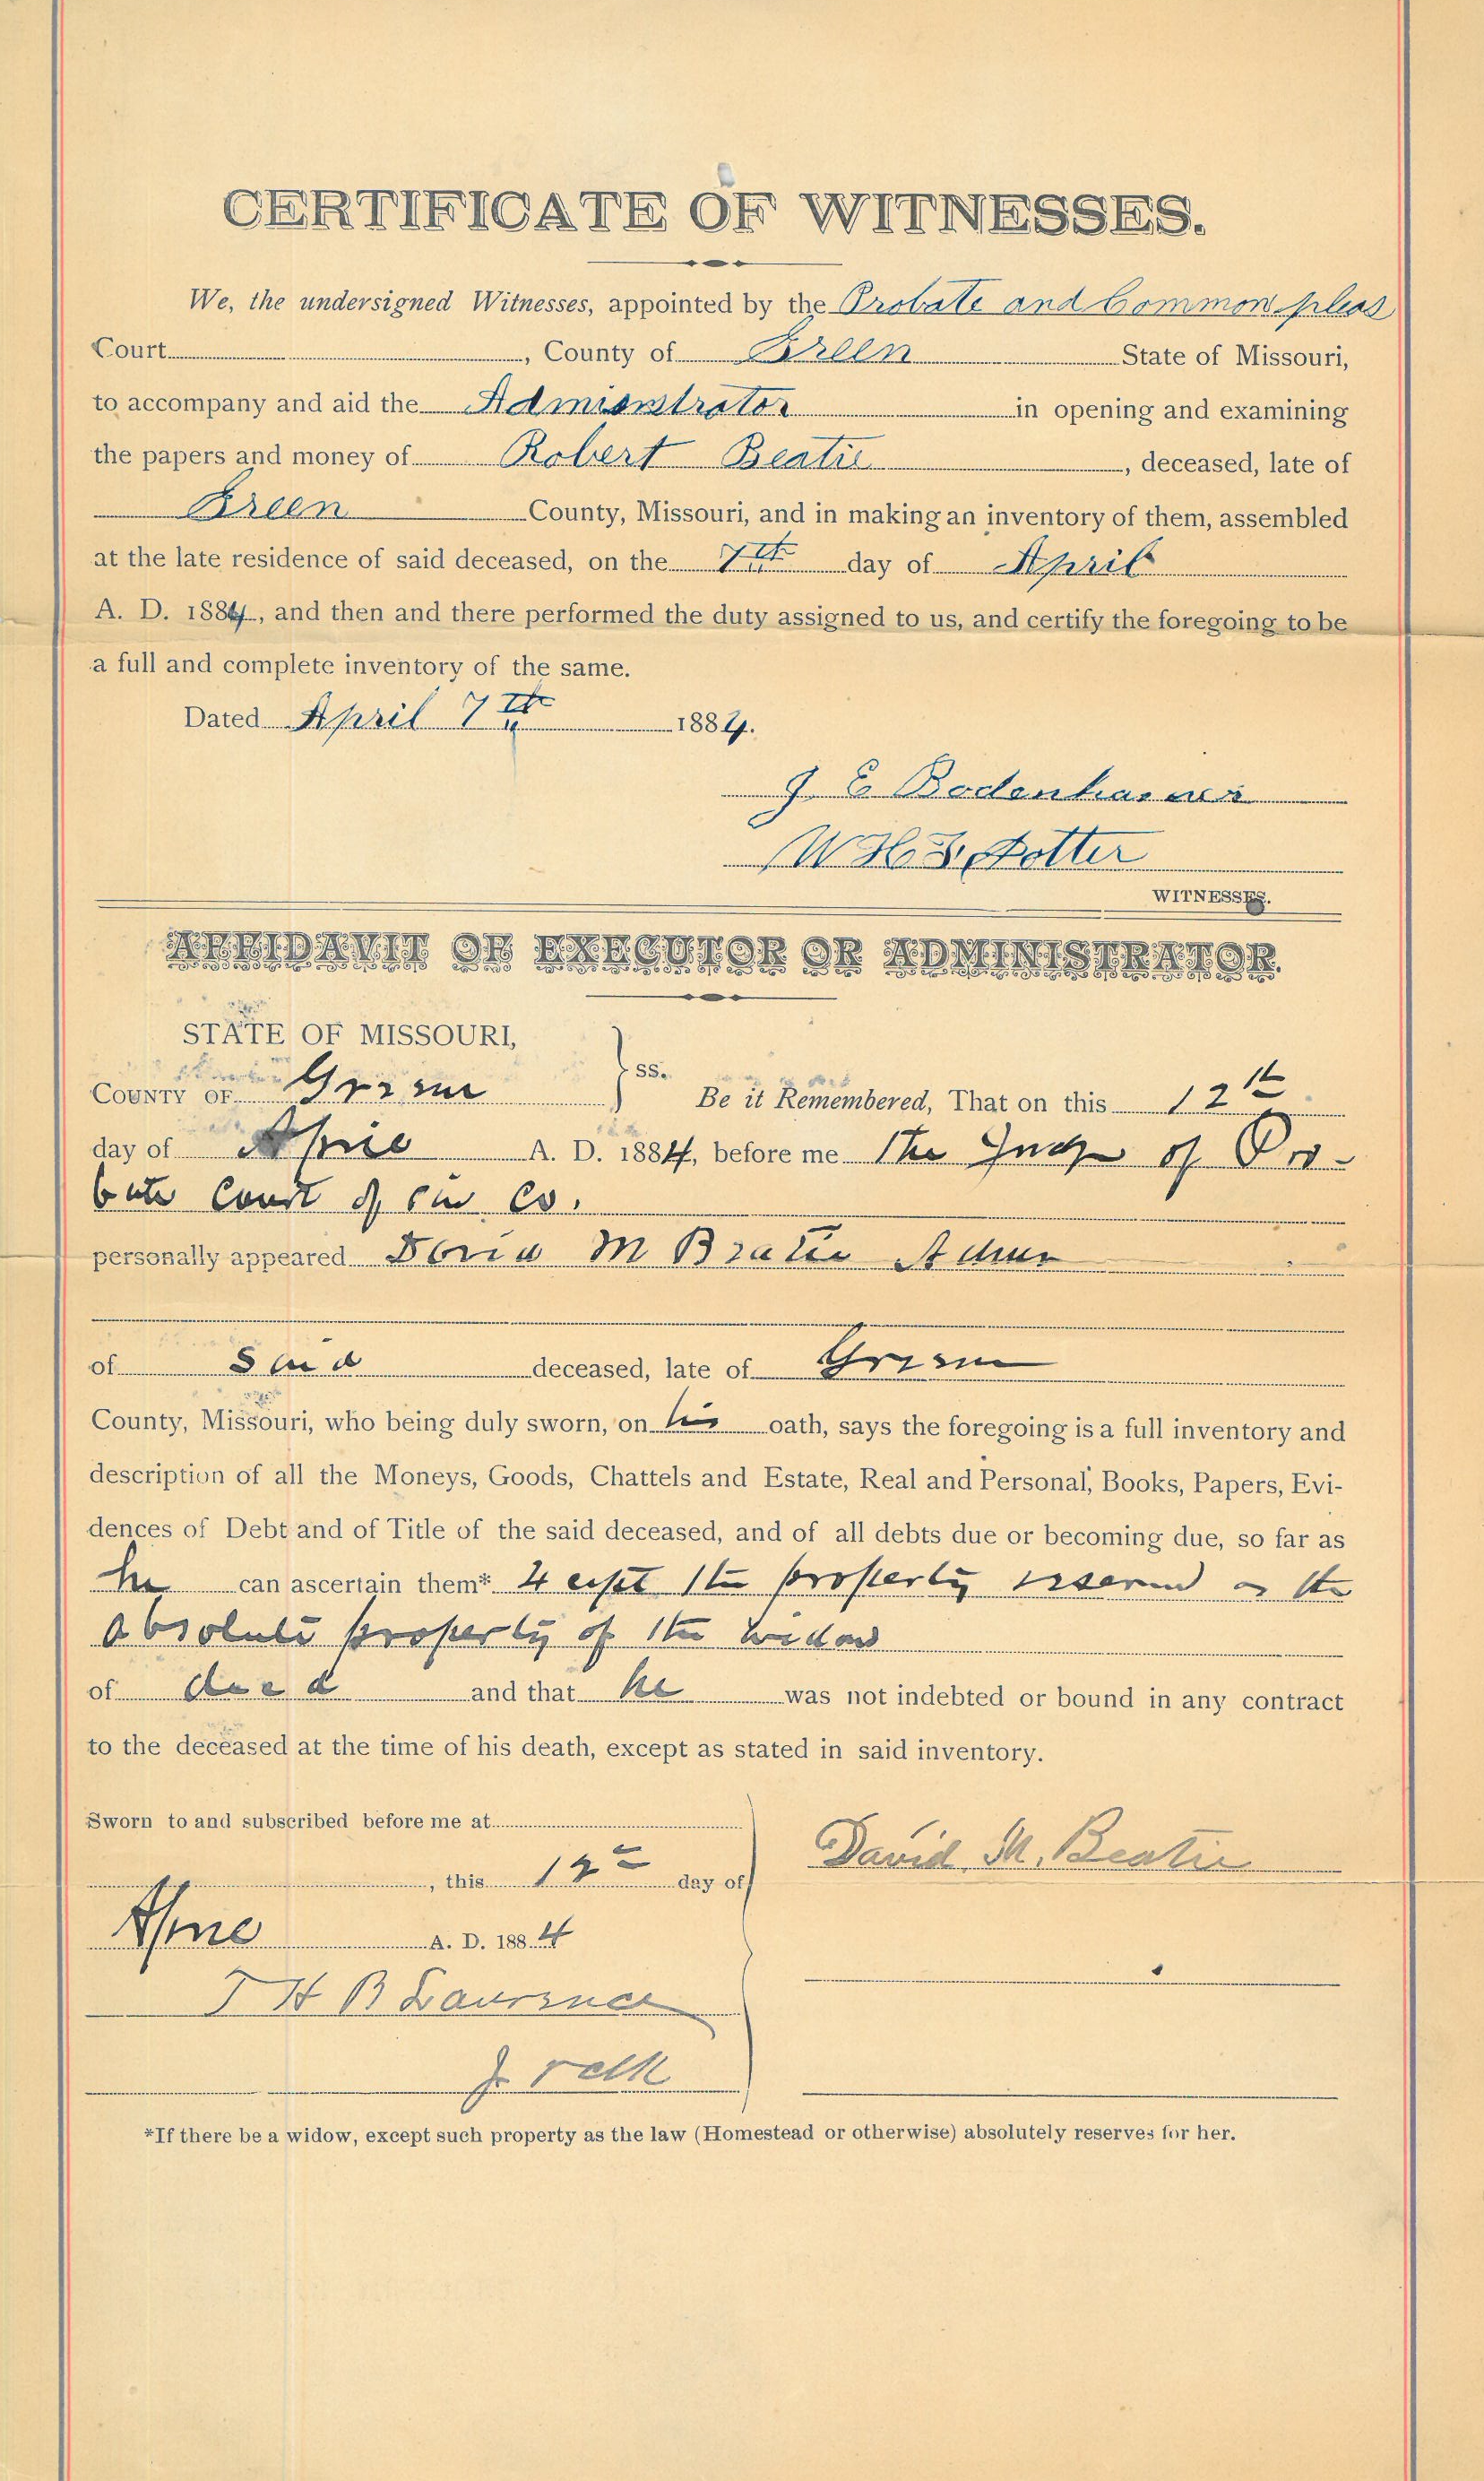 CERTIFICATE OF WITNESSES.
We, the undersigned Witnesses, appointed by the Probate and Common pleas
Court , County of Green State of Missouri,
to accompany and aid the Administrator in opening and examining
the papers and money of Robert Beatie , deceased, late of
Green County, Missouri, and in making an inventory of them, assembled
at the late residence of said deceased, on the 7th day of April
A. D. 1884, and then and there performed the duty assigned to us, and certify the foregoing to be
a full and complete inventory of the same.
Dated April 7th 1884.
J E Bodenhamer
W H F Potter
WITNESSES.
AFFIDAVIT OF EXECUTOR OR ADMINISTRATOR.
STATE OF MISSOURI,
COUNTY OF Greene } ss. Be it Remembered, That on this 12th
day of April A. D. 1884, before me The Judge of Pro-
bate Court of said Co.
personally appeared David M Beatie Admr
of Said deceased, late of Greene
County, Missouri, who being duly sworn, on his oath, says the foregoing is a full inventory and
description of all the Moneys, Goods, Chattels and Estate, Real and Personal, Books, Papers, Evi-
dences of Debt and of Title of the said deceased, and of all debts due or becoming due, so far as
he can ascertain them* Except the property reserved as the
absolute property of the widow
of decd and that he was not indebted or bound in any contract
to the deceased at the time of his death, except as stated in said inventory.
Sworn to and subscribed before me at
, this 12 day of
April A. D. 1884
David M. Beatie
T H B Lawrence
*If there be a widow, except such property as the law (Homestead or otherwise) absolutely reserves for her.